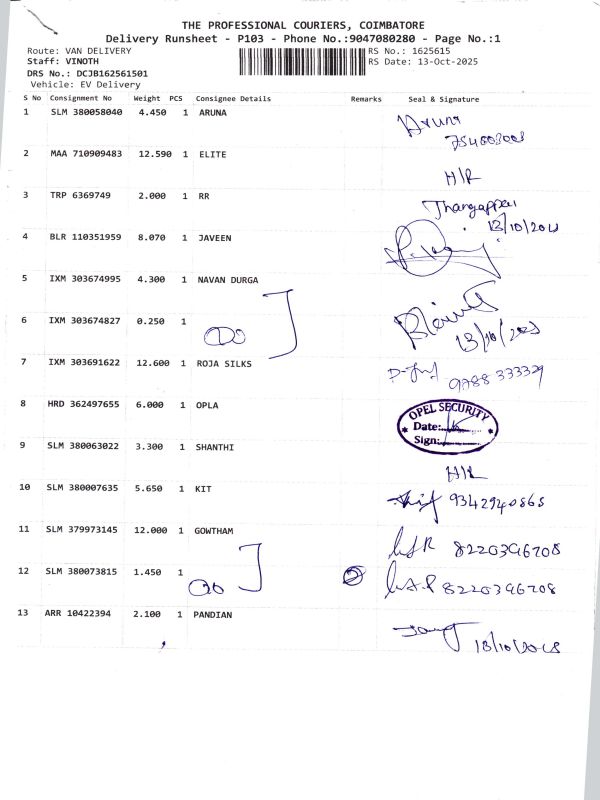 THE PROFESSIONAL COURIERS, COIMBATORE
Delivery Runsheet - P103 - Phone No.:9047080280 - Page No.:1
Route: VAN DELIVERY RS No.: 1625615
Staff: VINOTH RS Date: 13-Oct-2025
DRS No.: DCJB162561501
Vehicle: EV Delivery
S No Consignment No Weight PCS Consignee Details Remarks Seal & Signature
1 SLM 380058040 4.450 1 ARUNA Aruna
2 MAA 710909483 12.590 1 ELITE H/R
3 TRP 6369749 2.000 1 RR
4 BLR 110351959 8.070 1 JAVEEN
5 IXM 303674995 4.300 1 NAVAN DURGA
6 IXM 303674827 0.250 1
7 IXM 303691622 12.600 1 ROJA SILKS
8 HRD 362497655 6.000 1 OPLA OPEL SECURITY
Date:
Sign:
9 SLM 380063022 3.300 1 SHANTHI H/R
10 SLM 380007635 5.650 1 KIT 9342940865
11 SLM 379973145 12.000 1 GOWTHAM 8220396708
12 SLM 380073815 1.450 1 8220396708
13 ARR 10422394 2.100 1 PANDIAN